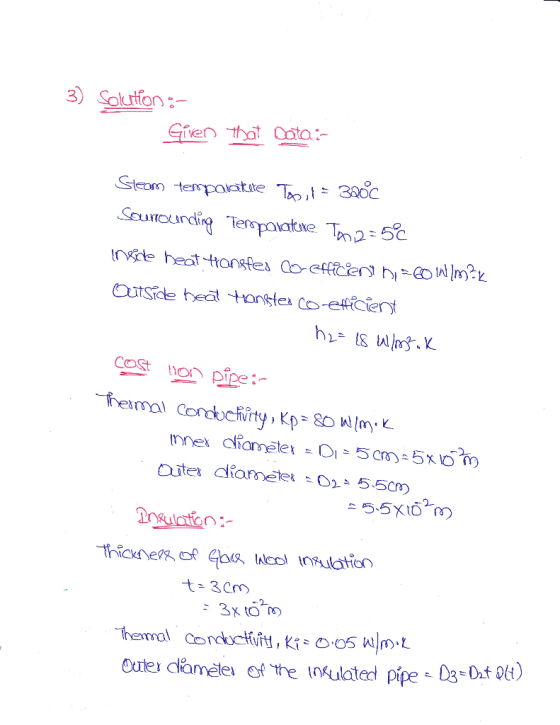 3) Solution :-
Given that Data :-
Steam temparature T∞,1 = 320°C
Sourrounding Temparature T∞,2 = 5°C
Inside heat transfer Co-efficient h1 = 60 W/m².K
Outside heat transfer co-efficient
h2 = 18 W/m².K
Cost Iron pipe :-
Thermal Conductivity, Kp = 80 W/m.K
Inner diameter = D1 = 5 cm = 5×10⁻²m
Outer diameter = D2 = 5.5cm
= 5.5×10⁻²m
Insulation :-
Thickness of Glass Wool Insulation
t = 3cm
= 3×10⁻²m
Thermal conductivity, Ki = 0.05 W/m.K
Outer diameter of the insulated pipe = D3 = D2 + 2(t)